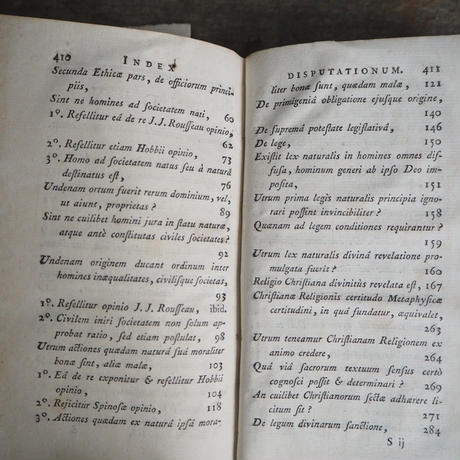 410 INDEX
Secunda Ethicæ pars, de officiorum princi-
piis,
Sint ne homines ad societatem nati, 60
1º. Refellitur eâ de re J. J. Rousseau opinio,
62
2º. Refellitur etiam Hobbii opinio, 73
3º. Homo ad societatem natus seu à naturâ
destinatus est, 76
Undenam ortum fuerit rerum dominium, vel,
ut aiunt, proprietas ? 89
Sint ne cuilibet homini jura in statu naturæ,
atque antè constitutas civiles societates ?
92
Undenam originem ducant ordinum inter
homines inæqualitates, civilisque societas,
93
1º. Refellitur opinio J. J. Rousseau, ibid.
2º. Civilem iniri societatem non solum ap-
probat ratio, sed etiam postulat, 98
Utrum actiones quædam naturâ suâ moraliter
bonæ sint, aliæ malæ, 103
1º. Eâ de re exponitur & refellitur Hobbii
opinio, 104
2º. Rejicitur Spinosæ opinio, 118
3º. Actiones quædam ex naturâ ipsâ mora-
DISPUTATIONUM. 411
liter bonæ sunt, quædam malæ, 121
De primigeniâ obligatione ejusque origine,
140
De supremâ potestate legislativâ, 146
De lege, 150
Existit lex naturalis in homines omnes dif-
fusa, hominum generi ab ipso Deo im-
posita, 151
Utrum prima legis naturalis principia igno-
rari possint invincibiliter ? 158
Quænam ad legem conditiones requirantur ?
159
Utrum lex naturalis divinâ revelatione pro-
mulgata fuerit ? 160
Religio Christiana divinitùs revelata est, 167
Christianæ Religionis certitudo Metaphysicæ
certitudini, in quâ fundatur, æquivalet,
263
Utrum teneamur Christianam Religionem ex
animo credere, 264
Quâ viâ sacrorum textuum sensus certò
cognosci possit & determinari ? 269
An cuilibet Christianorum sectæ adhærere li-
citum sit ? 271
De legum divinarum sanctione, 284
S ij